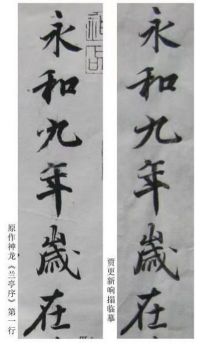 永和九年歲在
原作神龙《兰亭序》第一行
永和九年歲在
贾更新响搨临摹